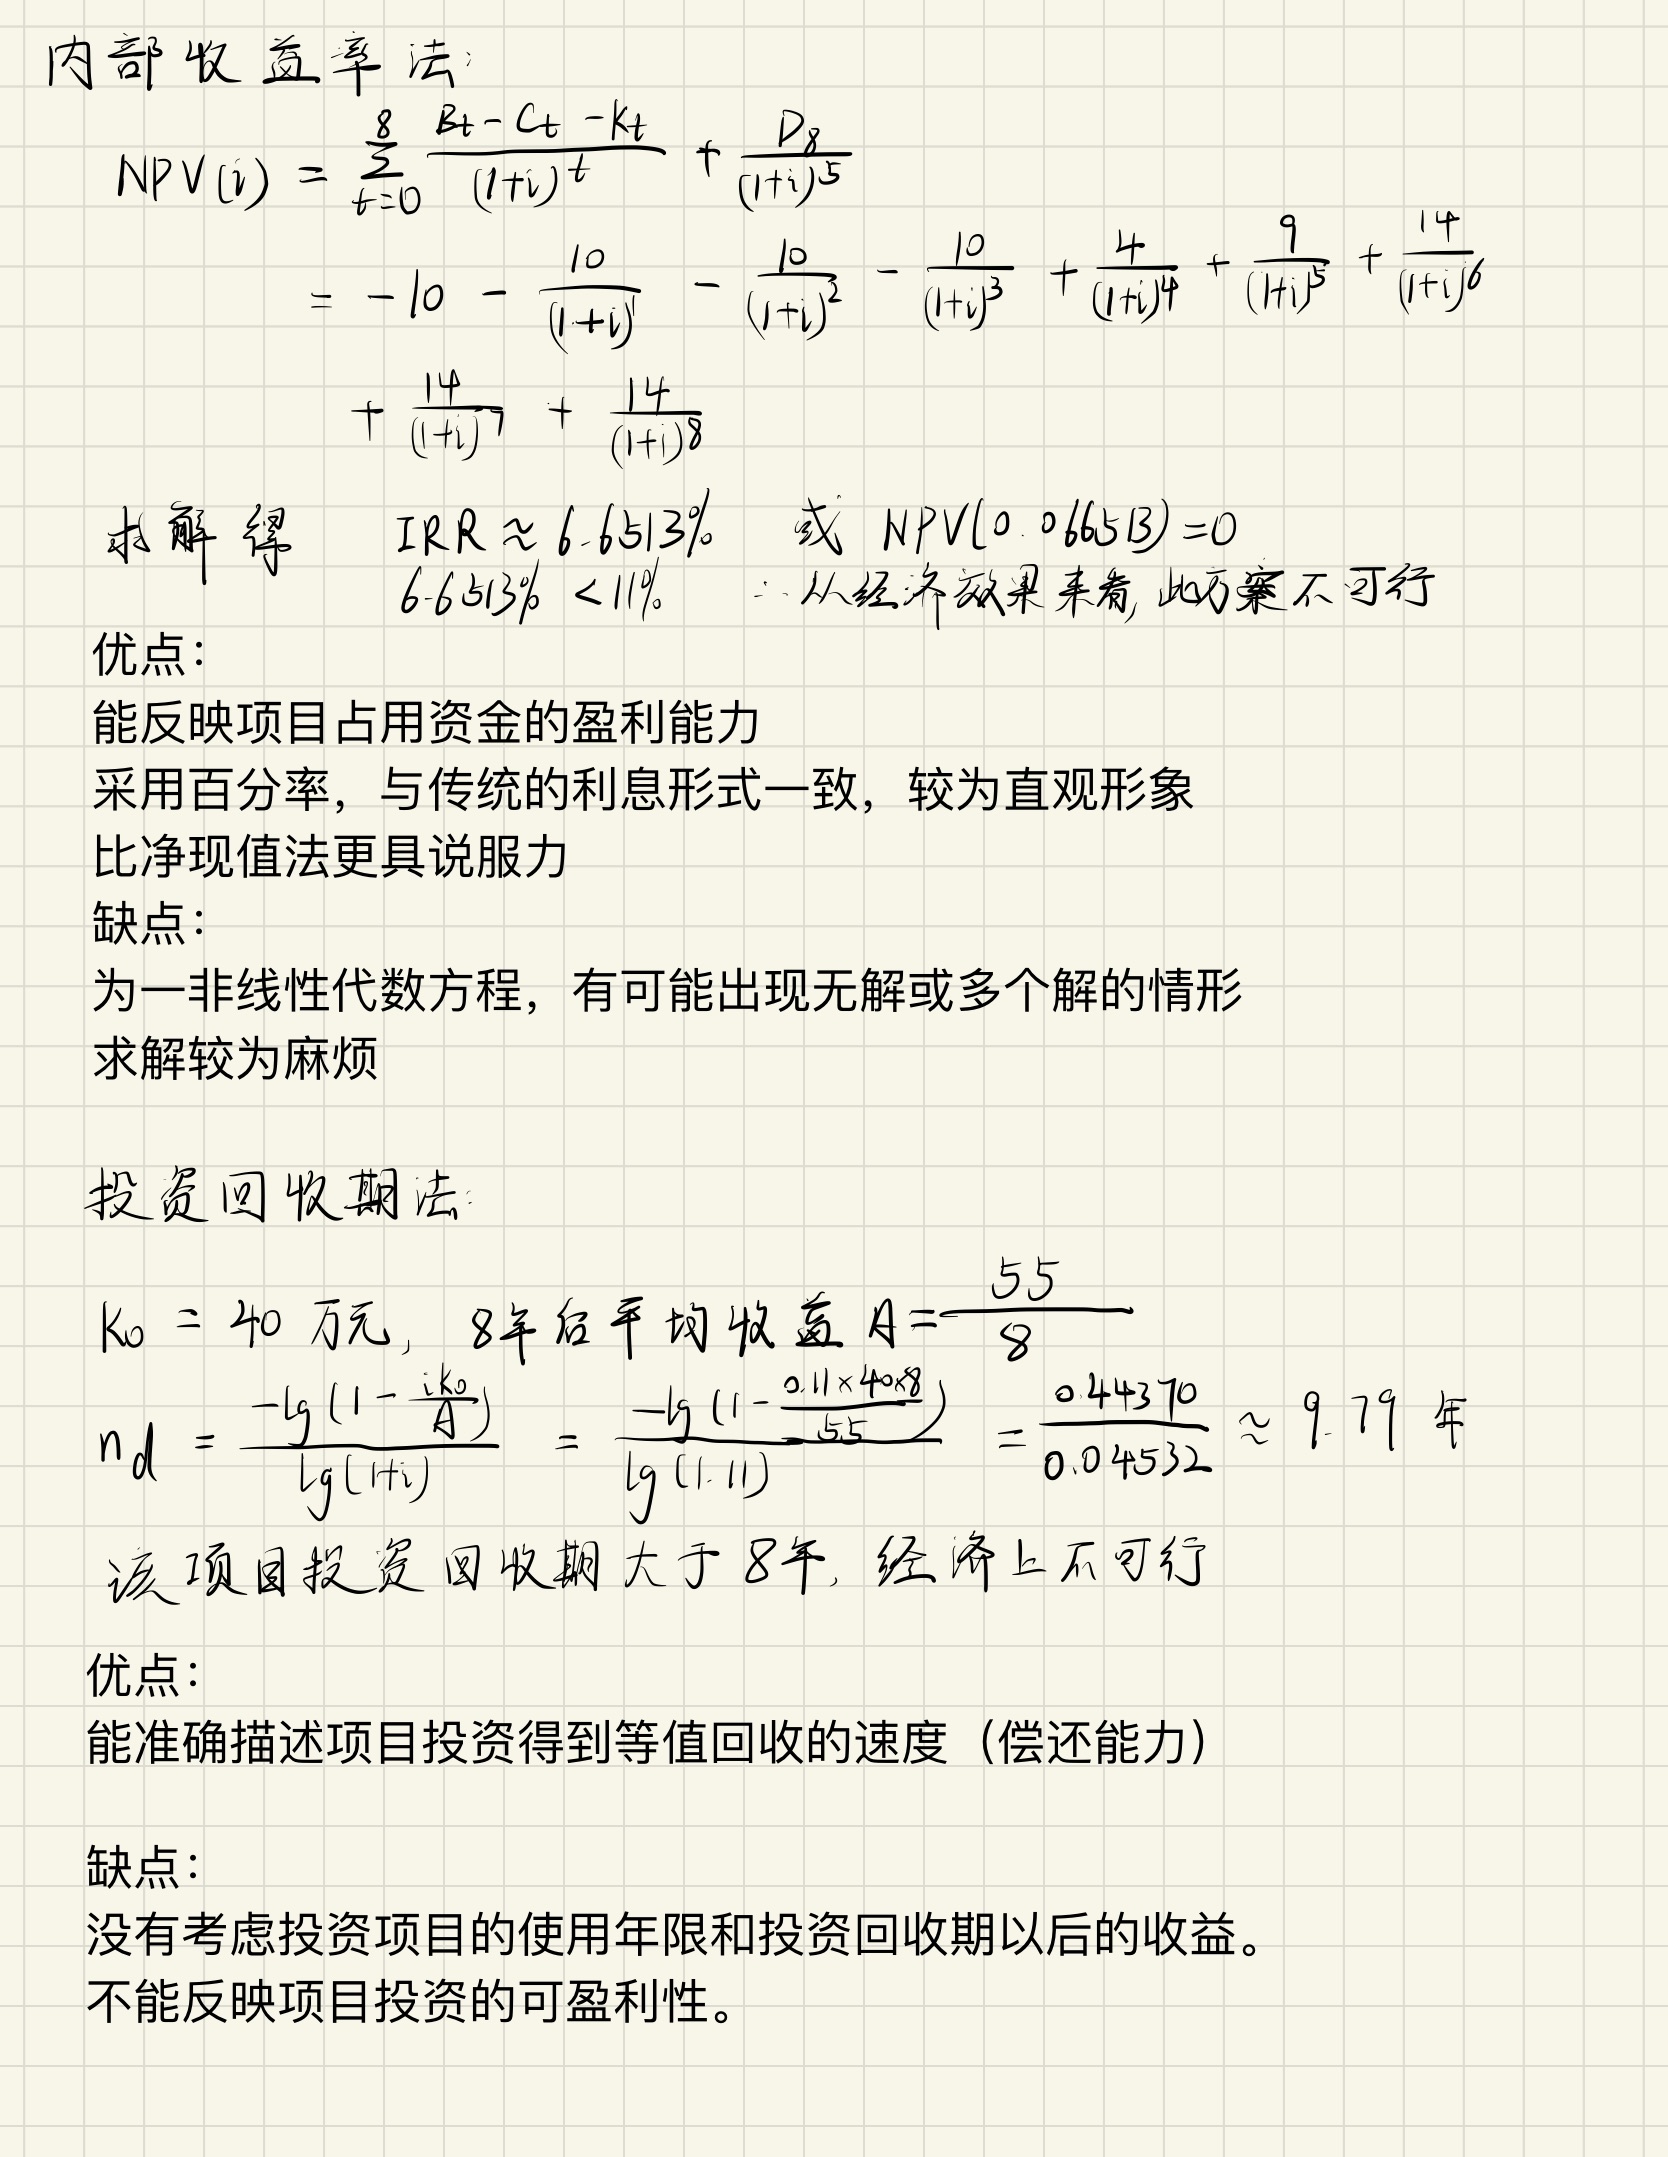 内部收益率法:
NPV(i) = \sum_{t=0}^{8} \frac{B_t - C_t - K_t}{(1+i)^t} + \frac{D_8}{(1+i)^5}
= -10 - \frac{10}{(1+i)^1} - \frac{10}{(1+i)^2} - \frac{10}{(1+i)^3} + \frac{4}{(1+i)^4} + \frac{9}{(1+i)^5} + \frac{14}{(1+i)^6}
+ \frac{14}{(1+i)^7} + \frac{14}{(1+i)^8}
求解得 IRR ≈ 6.6513% 或 NPV(0.066513) = 0
6.6513% < 11% ∴从经济效果来看, 此方案不可行
优点：
能反映项目占用资金的盈利能力
采用百分率，与传统的利息形式一致，较为直观形象
比净现值法更具说服力
缺点：
为一非线性代数方程，有可能出现无解或多个解的情形
求解较为麻烦
投资回收期法:
K_0 = 40 万元, 8年后平均收益 A = \frac{55}{8}
n_d = \frac{-lg(1 - \frac{iK_0}{A})}{lg(1+i)} = \frac{-lg(1 - \frac{0.11×40×8}{55})}{lg(1.11)} = \frac{0.44370}{0.04532} ≈ 9.79 年
该项目投资回收期大于8年, 经济上不可行
优点：
能准确描述项目投资得到等值回收的速度（偿还能力）
缺点：
没有考虑投资项目的使用年限和投资回收期以后的收益。
不能反映项目投资的可盈利性。